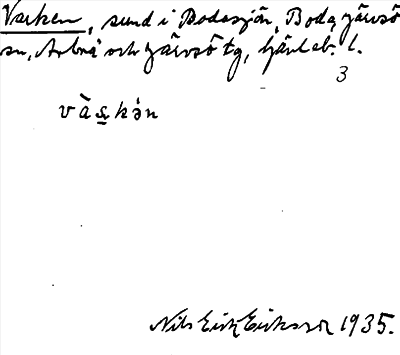 Vasken, sund i Bodasjön, Boda, Järvsö
sn, Arbrå och Järvsö tg, Gävleb. l.
3
vàskə̀n
Nils Erik Eriksson 1935.